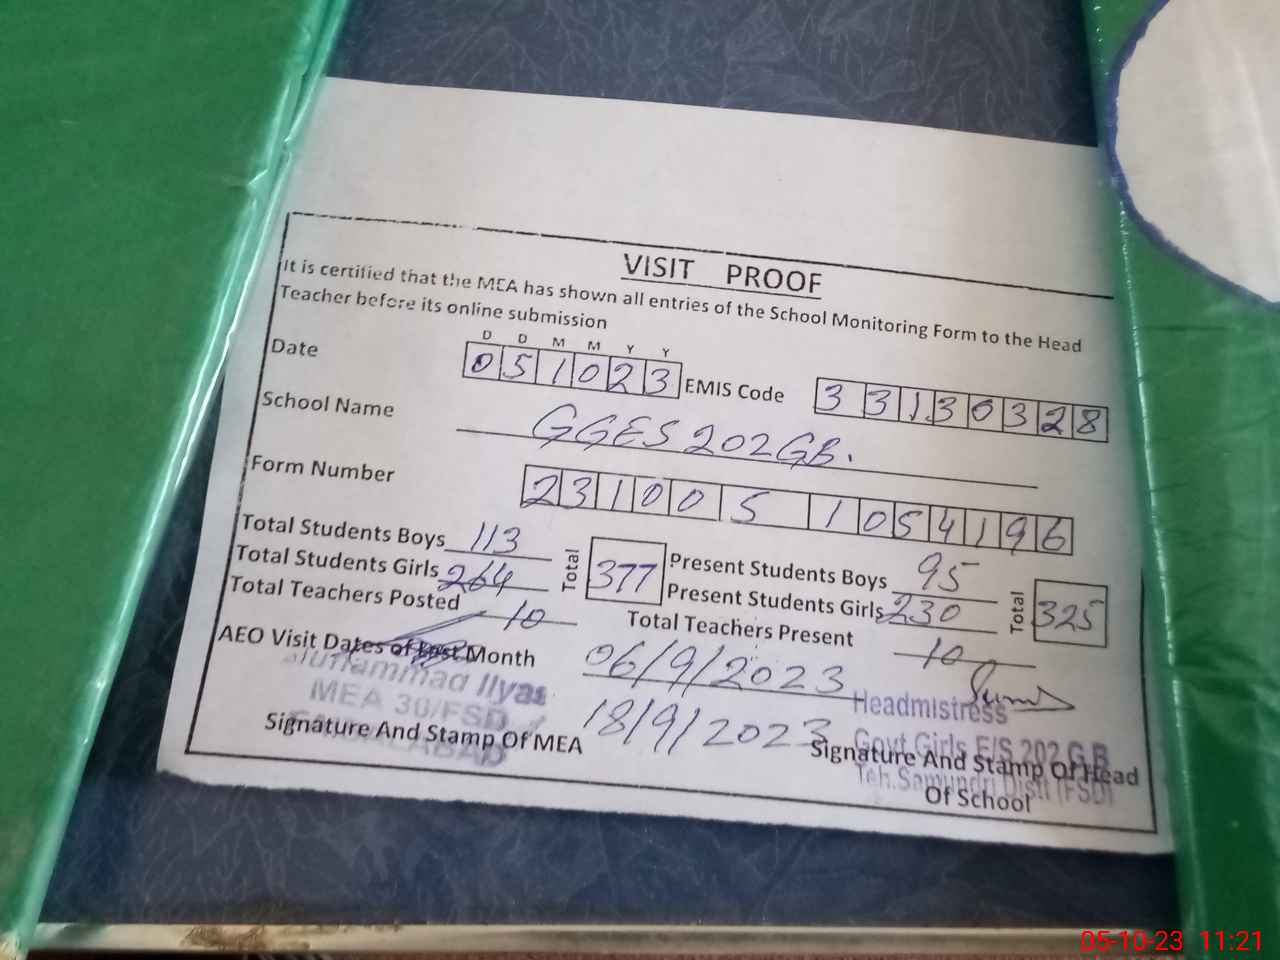 VISIT PROOF
It is certified that the MEA has shown all entries of the School Monitoring Form to the Head
Teacher before its online submission
D D M M Y Y
Date 051023 EMIS Code 33130328
School Name GGES 202 GB.
Form Number 2310051054196
Total Students Boys 113 Total 377 Present Students Boys 95 Total 325
Total Students Girls 264 Present Students Girls 230
Total Teachers Posted 10 Total Teachers Present 10
AEO Visit Dates of Last Month 06/9/2023
18/9/2023
Muhammad Ilyas
MEA 30/FSD
FAISALABAD
Signature And Stamp Of MEA
Headmistress
Govt Girls E/S 202 G.B
Teh. Samundri Distt (FSD)
Signature And Stamp Of Head
Of School
05-10-23 11:21